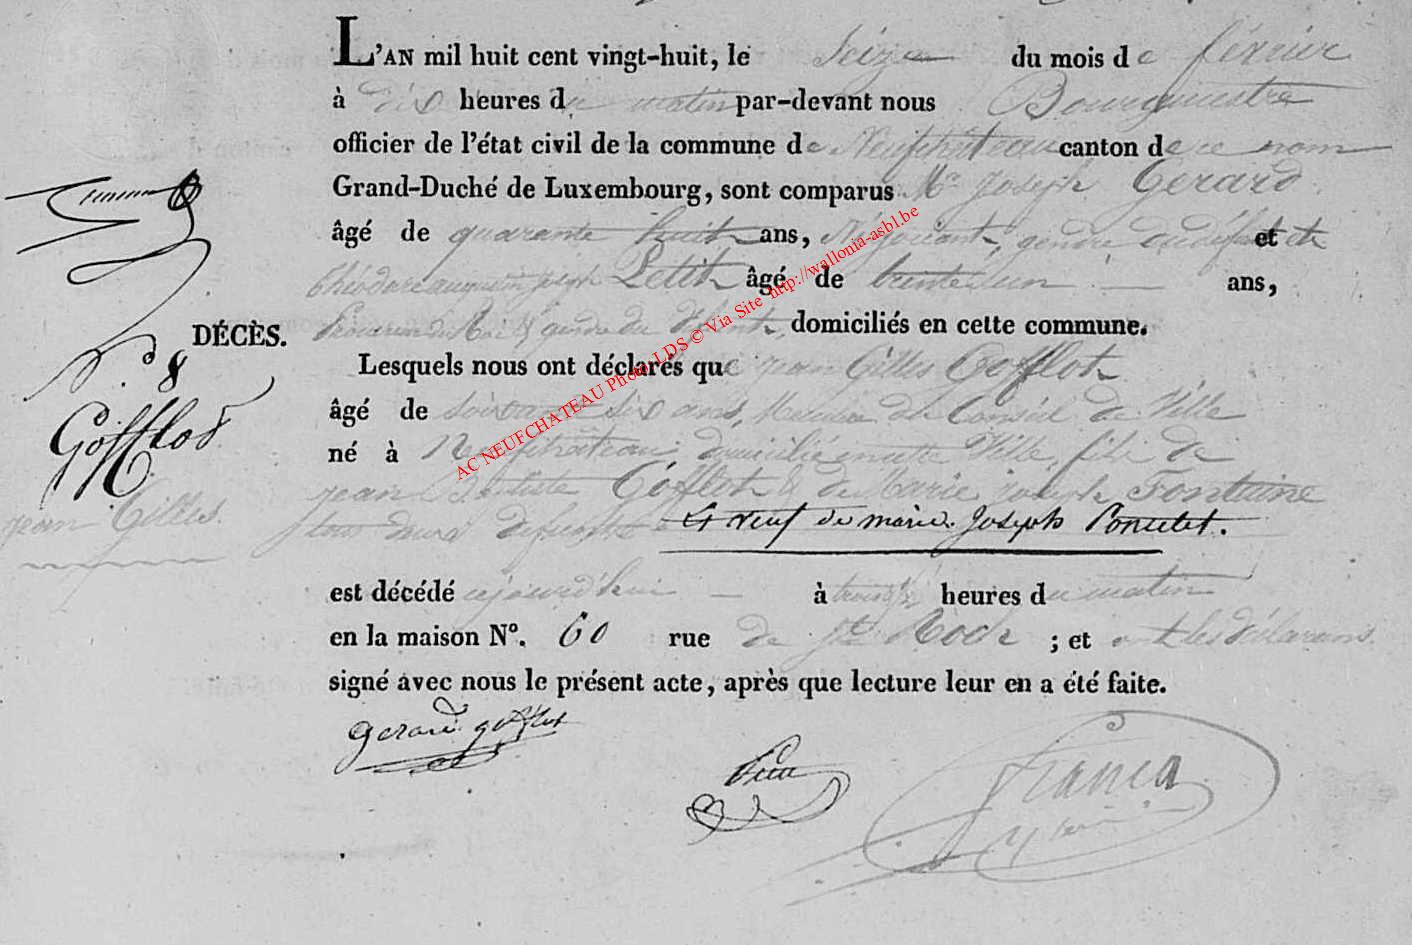 L'AN mil huit cent vingt-huit, le Seize du mois de février
à dix heures du matin par-devant nous Bourgmestre
officier de l'état civil de la commune de Neufchâteau canton de ce nom
Grand-Duché de Luxembourg, sont comparus Mr Joseph Gerard
âgé de quarante huit ans, Négociant, gendre du défunt et de
théodore augustin joseph Petit âgé de trente un ans,
gendre du défunt, domiciliés en cette commune.
DÉCÈS.
N.o 8
Gofflot
jean Gilles
Lesquels nous ont déclarés que jean Gilles Gofflot
âgé de soixante six ans, Membre du Conseil de Ville
né à Neufchâteau domicilié en Ville, fils de
jean Baptiste Gofflot & de Marie joseph Fontaine
tous deux défunts Et veuf de marie Joseph Poncelet.
est décédé aujourd'hui à trois heures du matin
en la maison No. 60 rue de St Roch ; et ont les déclarans
signé avec nous le présent acte, après que lecture leur en a été faite.
gerard gofflot
AC NEUFCHATEAU Photo LDS © Via Site http://wallonia-asbl.be